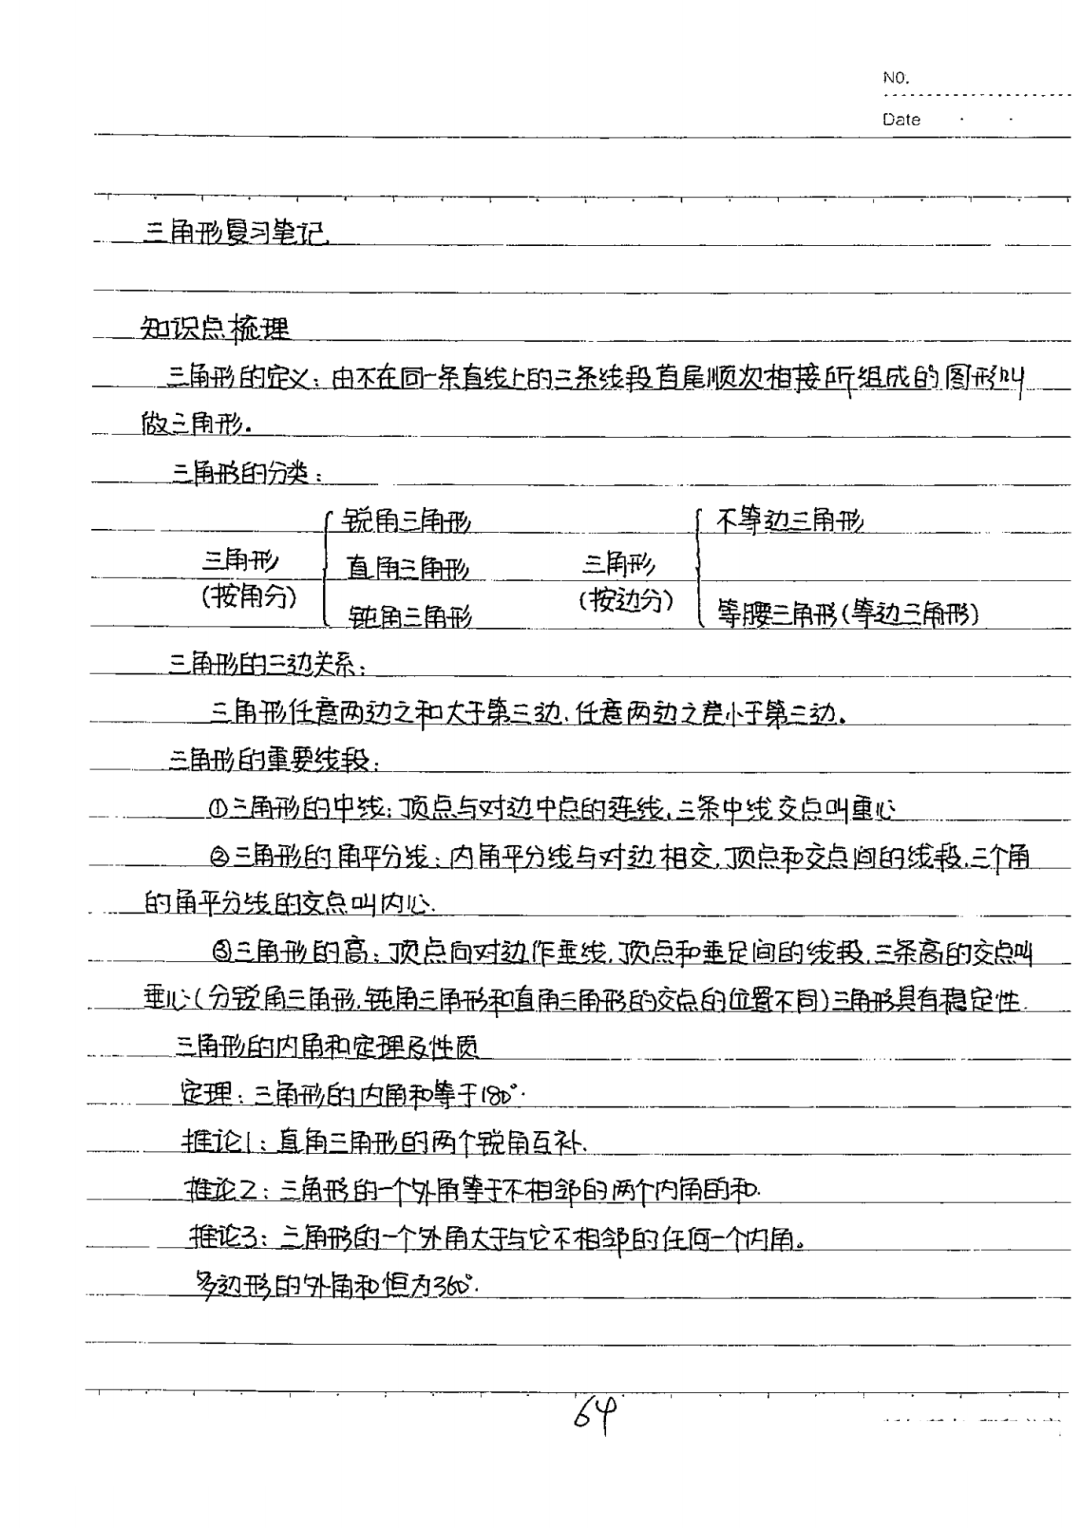 NO.
Date
三角形复习笔记
知识点梳理
三角形的定义：由不在同一条直线上的三条线段首尾顺次相接所组成的图形叫
做三角形.
三角形的分类：
锐角三角形 不等边三角形
三角形 直角三角形 三角形
(按角分) (按边分)
钝角三角形 等腰三角形(等边三角形)
三角形的三边关系：
三角形任意两边之和大于第三边.任意两边之差小于第三边.
三角形的重要线段：
①三角形的中线：顶点与对边中点的连线,三条中线交点叫重心
②三角形的角平分线：内角平分线与对边相交,顶点和交点间的线段,三个角
的角平分线的交点叫内心.
③三角形的高：顶点向对边作垂线,顶点和垂足间的线段,三条高的交点叫
垂心(分锐角三角形,钝角三角形和直角三角形的交点的位置不同)三角形具有稳定性.
三角形的内角和定理及性质
定理：三角形的内角和等于180°.
推论1：直角三角形的两个锐角互补.
推论2：三角形的一个外角等于不相邻的两个内角的和.
推论3：三角形的一个外角大于与它不相邻的任何一个内角。
多边形的外角和恒为360°.
64